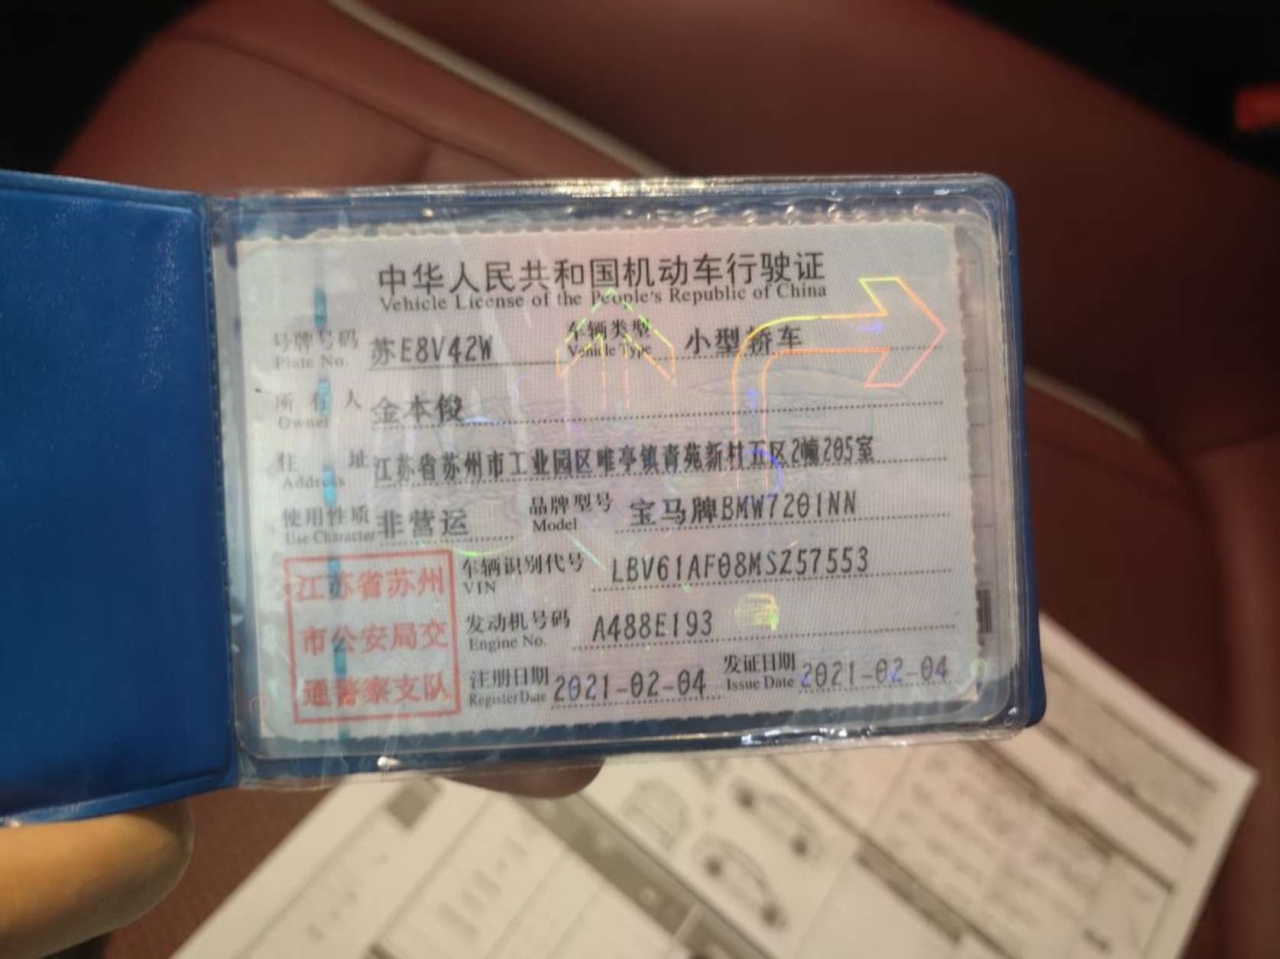 中华人民共和国机动车行驶证
Vehicle License of the People's Republic of China
号牌号码 苏E8V42W 车辆类型 小型轿车
Plate No. Vehicle Type
所有人 金本俊
Owner
住址 江苏省苏州市工业园区唯亭镇青苑新村五区2幢205室
Address
使用性质 非营运 品牌型号 宝马牌BMW7201NN
Use Character Model
江苏省苏州
市公安局交
通警察支队
车辆识别代号 LBV61AF08MSZ57553
VIN
发动机号码 A488E193
Engine No.
注册日期 2021-02-04 发证日期 2021-02-04
Register Date Issue Date